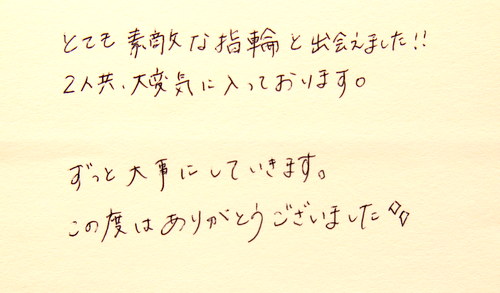 とても素敵な指輪と出会えました!!
2人共、大変気に入っております。
ずっと大事にしていきます。
この度はありがとうございました